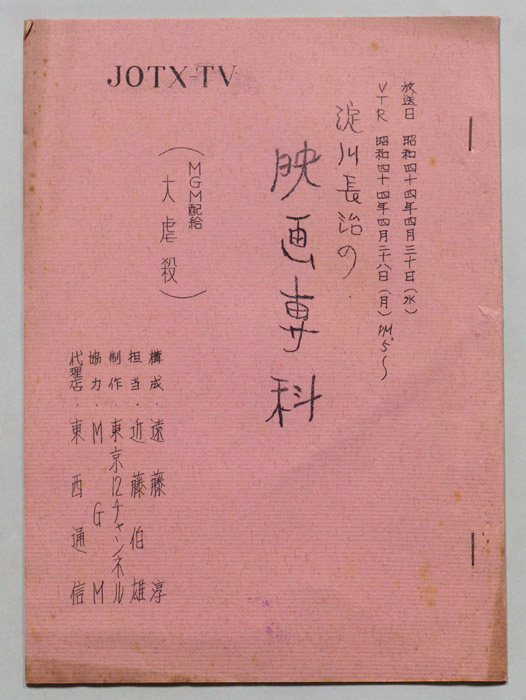 JOTX-TV
放送日 昭和四十四年四月三十日(水)
VTR 昭和四十四年四月二十八日(月)PM5〜
淀川長治の
映画専科
(MGM配給
大虐殺)
構成・遠藤淳
担当・近藤伯雄
制作・東京12チャンネル
協力・MGM
代理店・東西通信